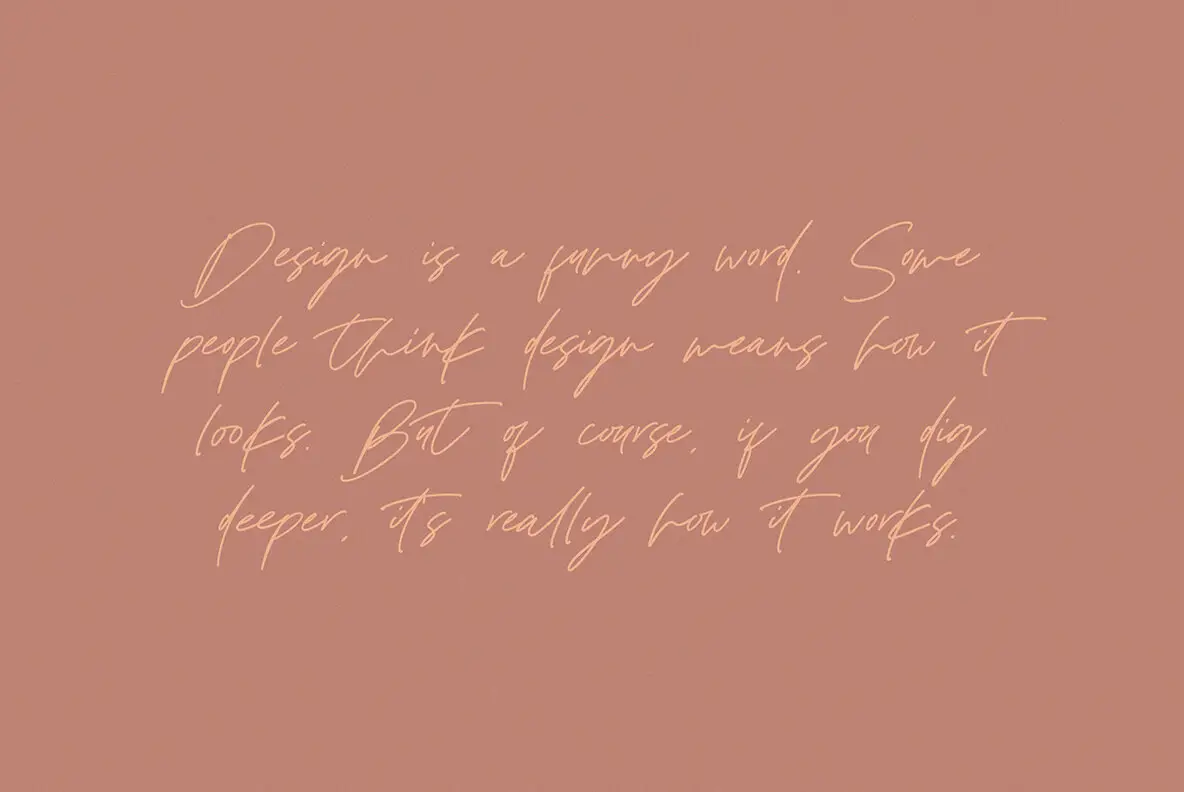 Design is a funny word. Some
people think design means how it
looks. But of course, if you dig
deeper, it's really how it works.